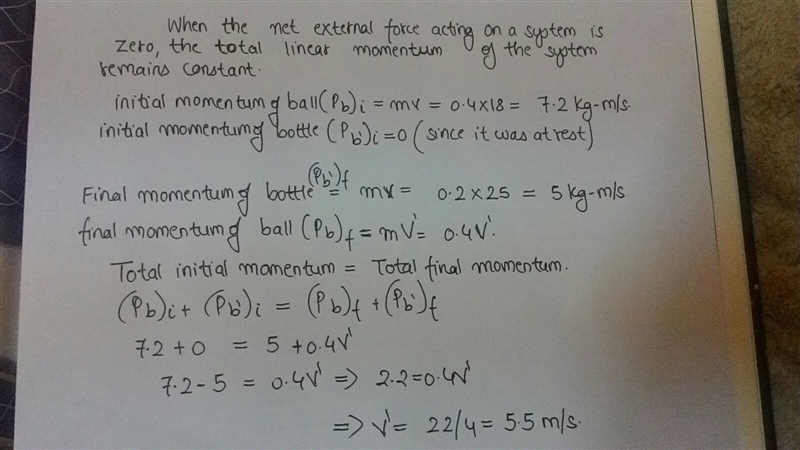 When the net external force acting on a system is
zero, the total linear momentum of the system
remains constant.
initial momentum of ball (Pb)i = mv = 0.4×18 = 7.2 kg-m/s.
initial momentum of bottle (Pb')i = 0 (since it was at rest)
Final momentum of bottle (Pb')f = mv = 0.2×25 = 5 kg-m/s
final momentum of ball (Pb)f = mV' = 0.4V'.
Total initial momentum = Total final momentum.
(Pb)i + (Pb')i = (Pb)f + (Pb')f
7.2+0 = 5+0.4V'
7.2-5 = 0.4V' => 2.2=0.4V'
=> V' = 22/4 = 5.5 m/s.